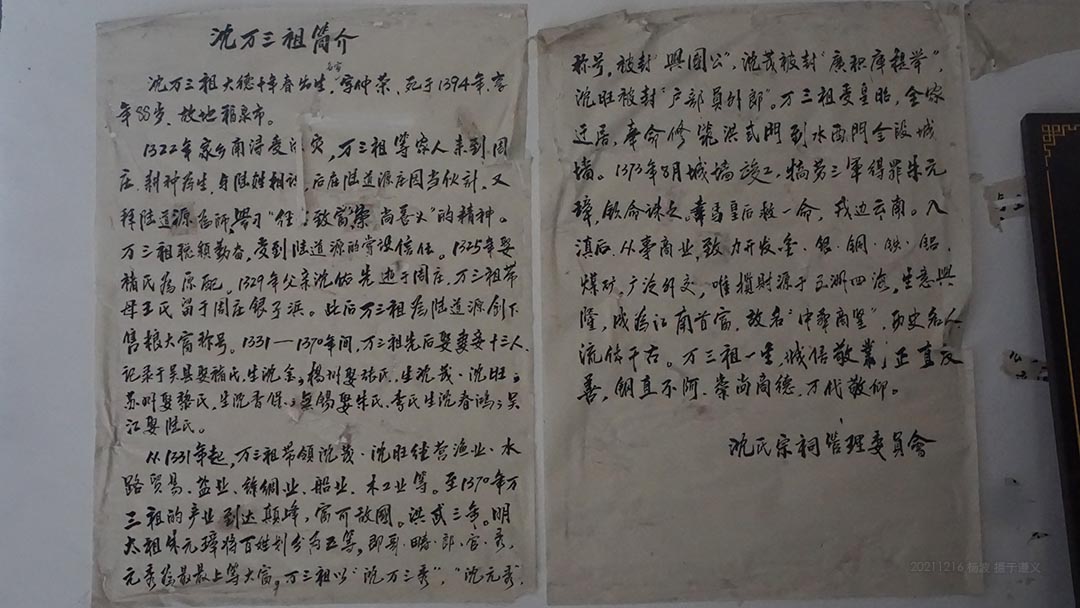 沈万三祖简介
沈万三祖大德十年春出生，名富字仲荣、死于1394年、享
年88岁、故地福泉市。
1322年家乡南浔受灾，万三祖等家人来到周
庄、耕种为生，与陆姓相识，后在陆道源庄园当伙计，又
拜陆道源为师，学习"任 致富 崇尚善义"的精神。
万三祖聪颖勤奋，受到陆道源的赏识信任。1325年娶
褚氏为原配。1329年父亲沈佑先逝于周庄，万三祖带
母王氏留于周庄银子浜。此后万三祖为陆道源创下
售粮大富称号。1331—1370年间，万三祖先后娶妻妾十三人、
记录于吴县娶褚氏、生沈金；扬州娶张氏、生沈茂·沈旺；
苏州娶黎氏，生沈香保；无锡娶朱氏、李氏生沈春鸿；吴
江娶陆氏。
从1331年起，万三祖带领沈茂·沈旺经营渔业·水
路贸易、盐业、绸业、船业、木工业等。至1370年万
三祖的产业到达颠峰，富可敌国。洪武三年。明
太祖朱元璋将百姓划分为五等，即哥·畸·郎·官·秀，
元秀为最最上等大富，万三祖以"沈万三秀"，"沈元秀"
称号，被封"兴国公"，沈茂被封"广积库提举"，
沈旺被封"户部员外郎"。万三祖受皇诏，全家
迁居，奉命修筑洪武门到水西门全段城
墙。1373年8月城墙竣工，犒劳三军得罪朱元
璋，敕命诛之。幸马皇后救一命，戍边云南。入
滇后、从事商业，致力开发金·银·铜·铁·铝·
煤矿，广泛外交，唯揽财源于五洲四海。生意兴
隆，成为江南首富，故名"中华商圣"，历史名人
流传千古。万三祖一生，诚信敬业；正直友
善，刚直不阿、崇尚商德，万代敬仰。
沈氏宗祠管理委员会
20211216 杨波 摄于遵义